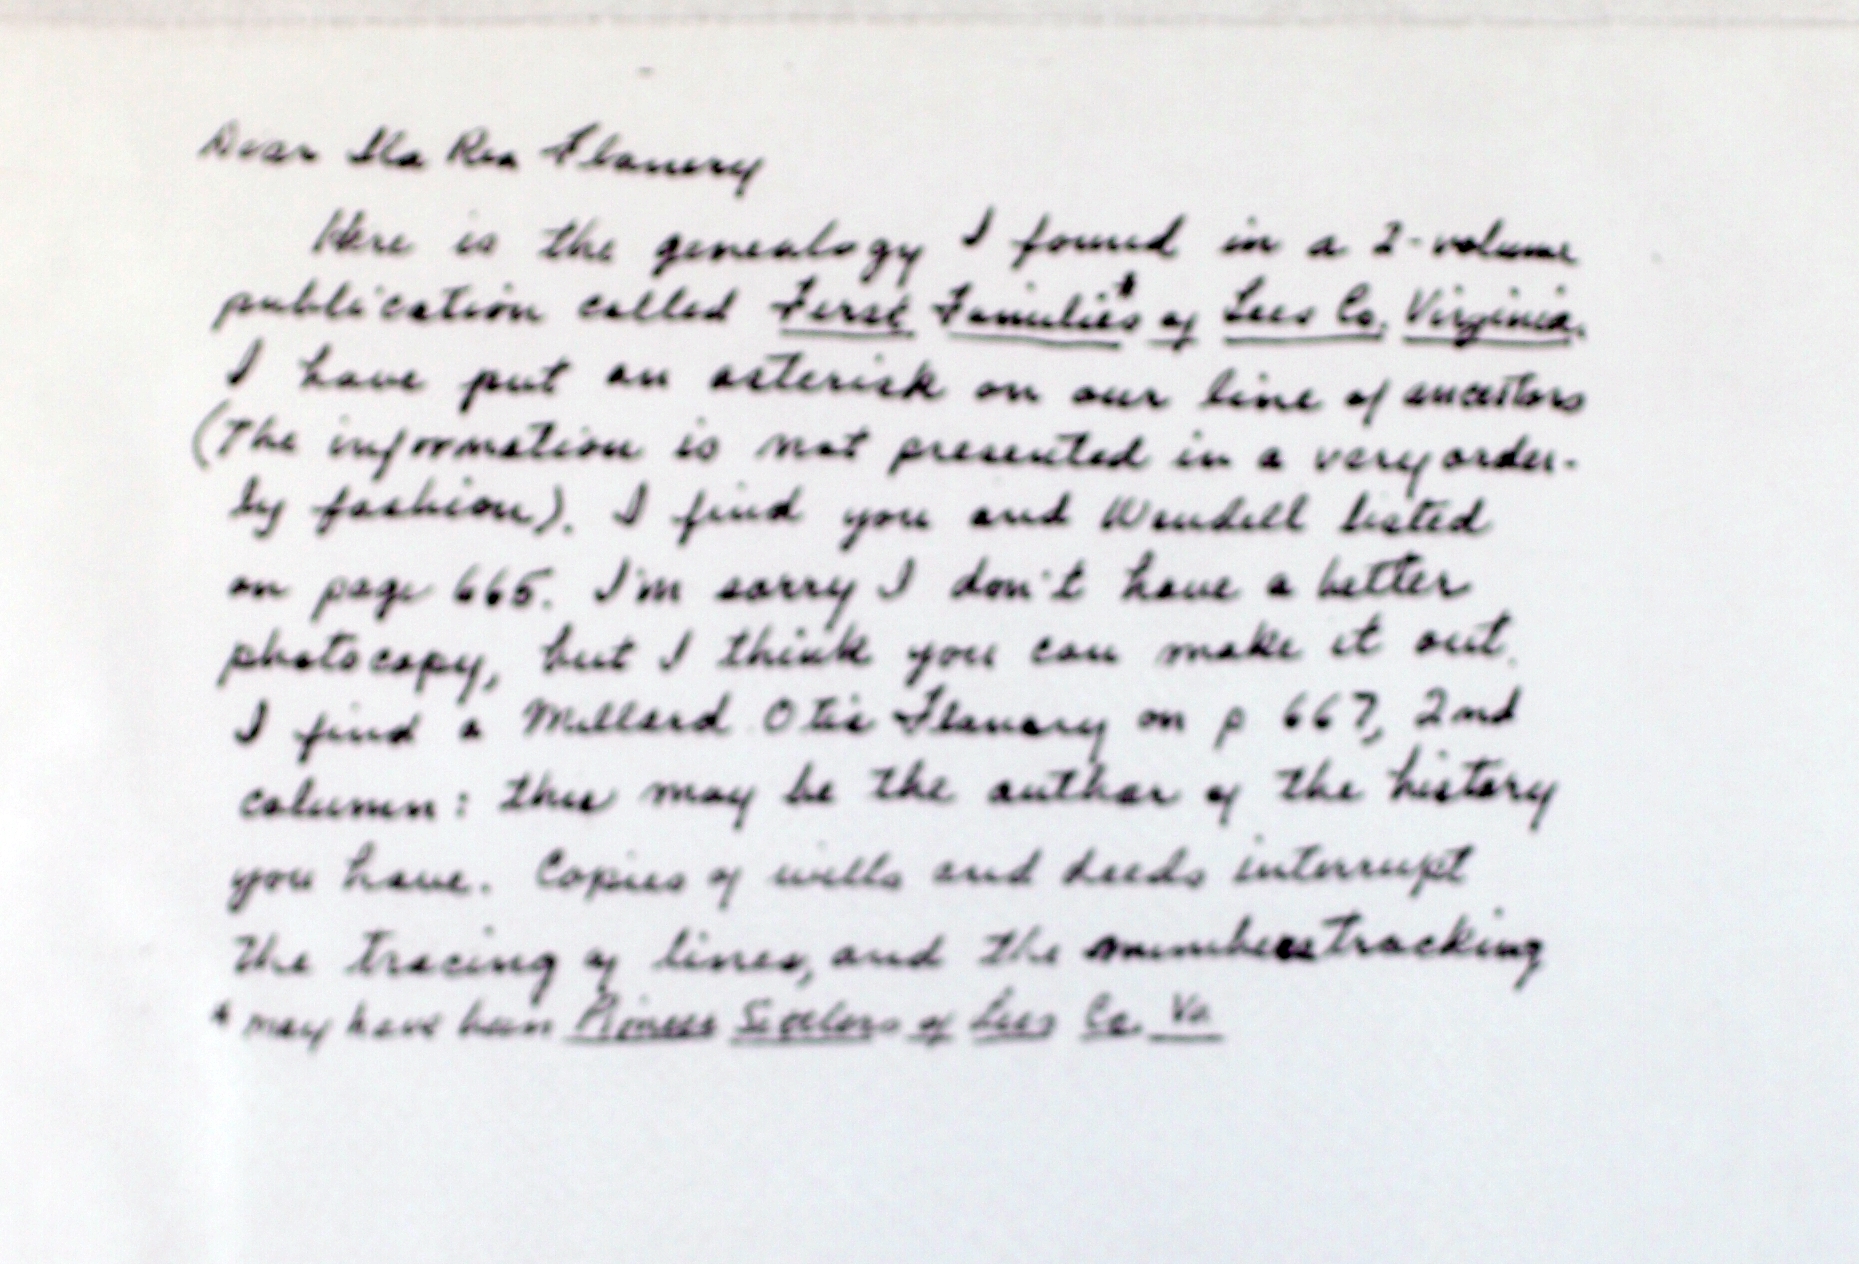 Dear Ila Rea Flanery
Here is the genealogy I found in a 2-volume
publication called First Families* of Lees Co, Virginia.
I have put an asterisk on our line of ancestors
(The information is not presented in a very order-
ly fashion). I find you and Wendell listed
on page 665. I'm sorry I don't have a better
photocopy, but I think you can make it out.
I find a Millard Otis Flanary on p 667, 2nd
column: this may be the author of the history
you have. Copies of wills and deeds interrupt
the tracing of lines, and the tracking
* may have been Pioneer Settlers of Lees Co. Va